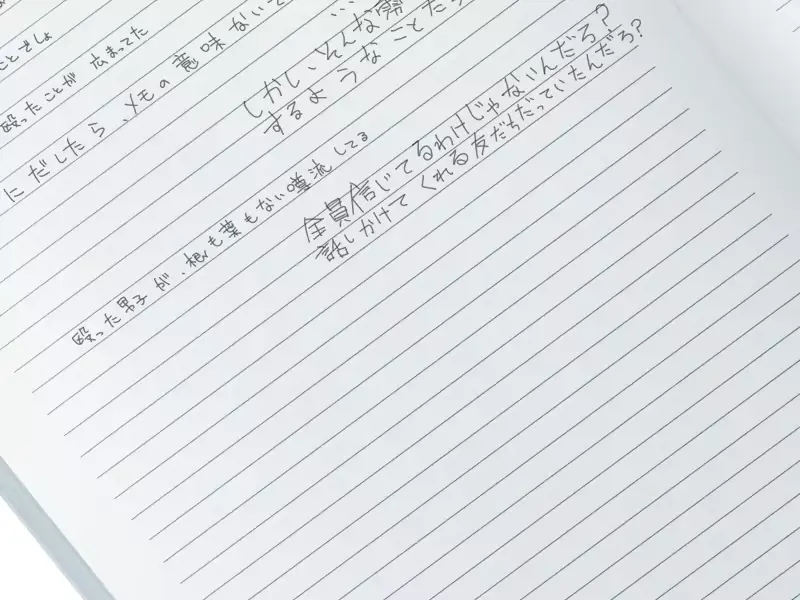 ことでしょ
殴ったことが 広まってた
にだしたら、メモの意味ない
殴った男子が、根も葉もない噂流してる
…
しかし、そんな
するようなことだ
全員信じてるわけじゃないんだろ?
話しかけてくれる友だちだっていたんだろ?